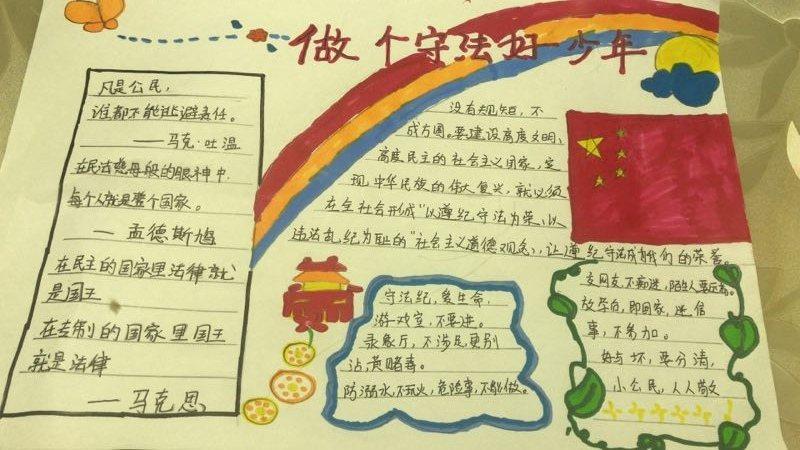 做个守法好少年
凡是公民，
谁都不能逃避责任。
——马克·吐温
在民法慈母般的眼神中，
每个人就是整个国家。
——孟德斯鸠
在民主的国家里法律就
是国王
在专制的国家里国王
就是法律
——马克思
没有规矩，不
成方圆。要建设高度文明，
高度民主的社会主义国家，实
现中华民族的伟大复兴，就必须
在全社会形成“以遵纪守法为荣、以
违法乱纪为耻的”社会主义道德观念，让遵纪守法成为我们的荣誉。
守法纪，爱生命，
游戏室，不要进。
录象厅，不涉足更别
沾黄赌毒。
防溺水不玩火，危险事，不能做。
交网友，不轻进，陌生人要远离。
放学后，即回家，迷信
事，不参加。
好与坏，要分清，
小公民，人人敬